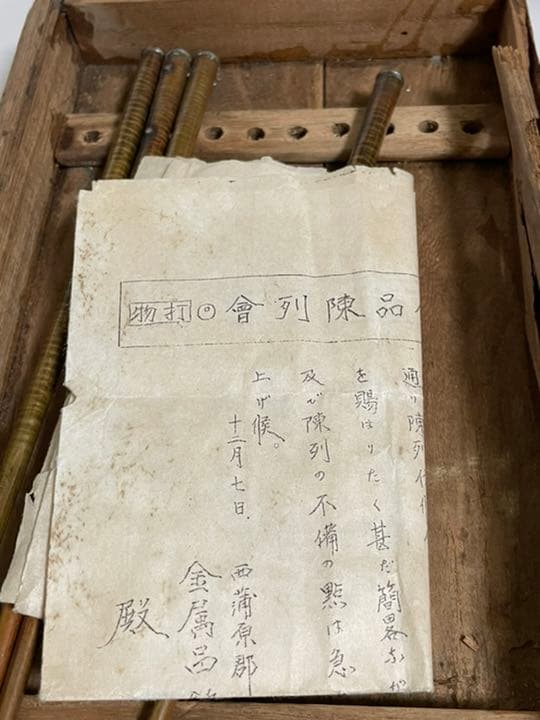 品陳列會◎打物
通り陳列
を賜はりたく甚だ簡畧なが
及び陳列の不備の點は急
上げ候。
十二月七日、
西蒲原郡
金属品
殿